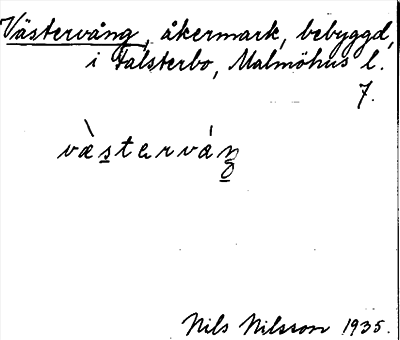 Västervång, åkermark, bebyggd,
i Falsterbo, Malmöhus l.
7.
væ̀stərváŋ
Nils Nilsson 1935.